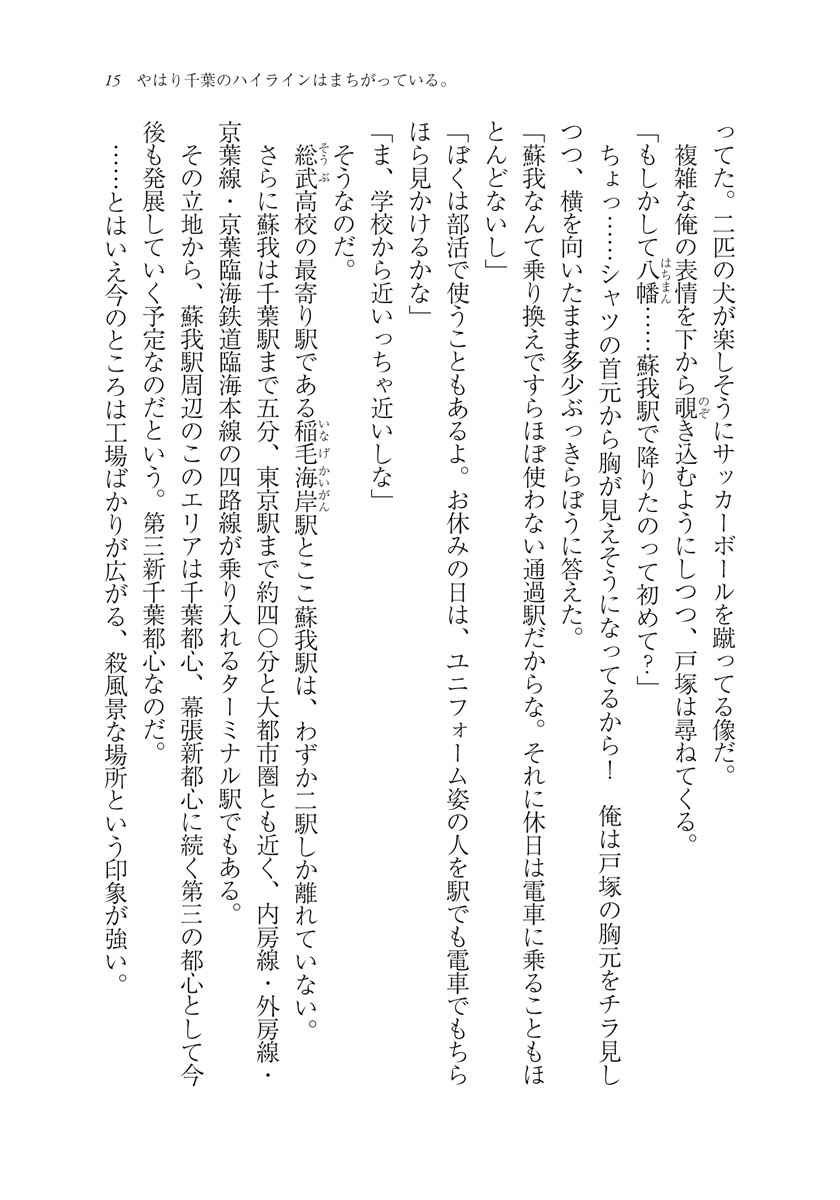 15 やはり千葉のハイラインはまちがっている。
ってた。二匹の犬が楽しそうにサッカーボールを蹴ってる像だ。
　複雑な俺の表情を下から覗き込むようにしつつ、戸塚は尋ねてくる。
のぞ
「もしかして八幡……蘇我駅で降りたのって初めて？」
はちまん
　ちょっ……シャツの首元から胸が見えそうになってるから！　俺は戸塚の胸元をチラ見し
つつ、横を向いたまま多少ぶっきらぼうに答えた。
「蘇我なんて乗り換えですらほぼ使わない通過駅だからな。それに休日は電車に乗ることもほ
とんどないし」
「ぼくは部活で使うこともあるよ。お休みの日は、ユニフォーム姿の人を駅でも電車でもちら
ほら見かけるかな」
「ま、学校から近いっちゃ近いしな」
　そうなのだ。
　総武高校の最寄り駅である稲毛海岸駅とここ蘇我駅は、わずか二駅しか離れていない。
そうぶ
いなげかいがん
　さらに蘇我は千葉駅まで五分、東京駅まで約四〇分と大都市圏とも近く、内房線・外房線・
京葉線・京葉臨海鉄道臨海本線の四路線が乗り入れるターミナル駅でもある。
　その立地から、蘇我駅周辺のこのエリアは千葉都心、幕張新都心に続く第三の都心として今
後も発展していく予定なのだという。第三新千葉都心なのだ。
　……とはいえ今のところは工場ばかりが広がる、殺風景な場所という印象が強い。